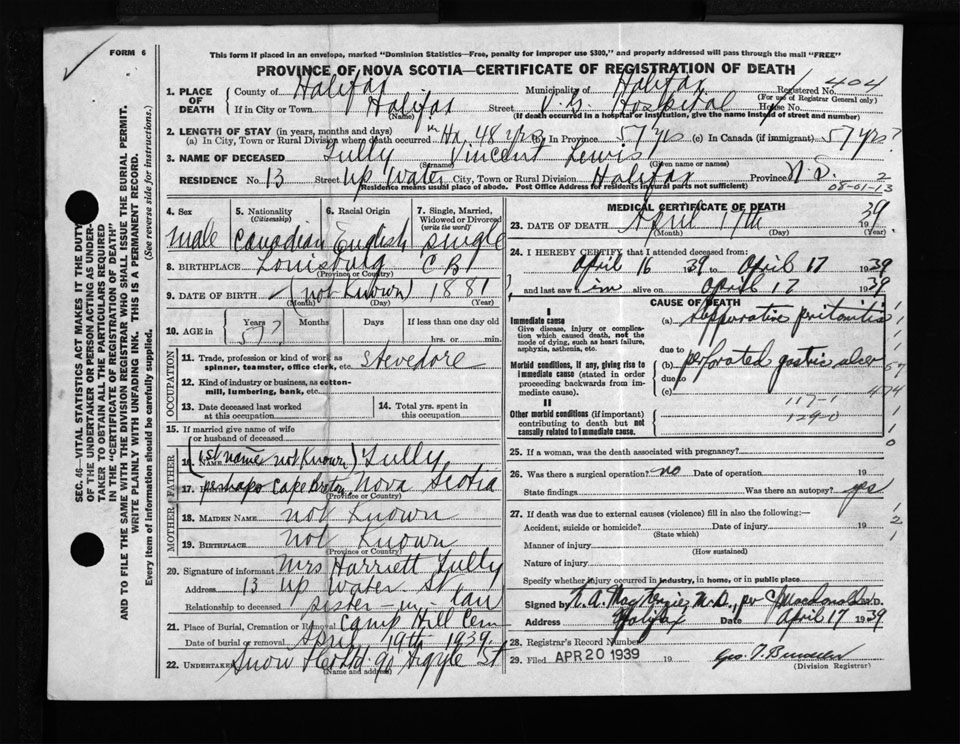 FORM 6
This form if placed in an envelope, marked "Dominion Statistics—Free, penalty for improper use $300," and properly addressed will pass through the mail "FREE"
PROVINCE OF NOVA SCOTIA—CERTIFICATE OF REGISTRATION OF DEATH
1. PLACE OF DEATH County of Halifax Municipality of Halifax Registered No. 404
(For use of Registrar General only)
If in City or Town Halifax Street V.G. Hospital House No.
(Name) (If death occurred in a hospital or institution, give the name instead of street and number)
2. LENGTH OF STAY (in years, months and days)
(a) In City, Town or Rural Division where death occurred in Hx 48 yrs (b) In Province 57 yrs (c) In Canada (if immigrant) 57 yrs?
3. NAME OF DECEASED Tully Vincent Lewis
(Surname) (Given name or names)
RESIDENCE No. 13 Street Up Water City, Town or Rural Division Halifax Province N.S. 2
(Residence means usual place of abode. Post Office Address for residents in rural parts not sufficient) 08-01-13
4. Sex Male
5. Nationality (Citizenship) Canadian
6. Racial Origin English
7. Single, Married, Widowed or Divorced (write the word) Single
8. BIRTHPLACE Louisburg C B
(Province or Country)
9. DATE OF BIRTH (not Known) 1881
(Month) (Day) (Year)
10. AGE in Years Months Days If less than one day old
57? hrs. or min.
OCCUPATION
11. Trade, profession or kind of work as spinner, teamster, office clerk, etc. Stevedore
12. Kind of industry or business, as cotton-mill, lumbering, bank, etc.
13. Date deceased last worked at this occupation
14. Total yrs. spent in this occupation
15. If married give name of wife or husband of deceased
FATHER
16. Name (1st name not Known) Tully
17. perhaps Cape Breton Nova Scotia
(Province or Country)
MOTHER
18. MAIDEN NAME not Known
19. BIRTHPLACE not Known
(Province or Country)
20. Signature of informant Mrs Harriett Tully
Address 13 Up Water St
Relationship to deceased sister-in law
21. Place of Burial, Cremation or Removal Camp Hill Cem
Date of burial or removal April 19th 1939
22. Undertaker Snow & Co Ltd. 90 Argyle St
(Name and address)
MEDICAL CERTIFICATE OF DEATH
23. DATE OF DEATH April 17th 1939
(Month) (Day) (Year)
24. I HEREBY CERTIFY that I attended deceased from:
April 16 1939 to April 17 1939
and last saw im alive on April 17 1939
CAUSE OF DEATH
I
Immediate cause (a) Suppurative peritonitis
Give disease, injury or complication which caused death, not the mode of dying, such as heart failure, asphyxia, asthenia, etc.
due to
Morbid conditions, if any, giving rise to immediate cause (stated in order proceeding backwards from immediate cause). (b) perforated gastric ulcer
due to
(c)
117-1
II
Other morbid conditions (if important) contributing to death but not causally related to immediate cause.
25. If a woman, was the death associated with pregnancy?
26. Was there a surgical operation? no Date of operation 19
State findings Was there an autopsy? yes
27. If death was due to external causes (violence) fill in also the following:—
Accident, suicide or homicide? Date of injury 19
(State which)
Manner of injury
(How sustained)
Nature of injury
Specify whether injury occurred in industry, in home, or in public place
Signed by MacKenzie M.D., per C Macdonald M.D.
Address Halifax Date April 17 1939
28. Registrar's Record Number
29. Filed APR 20 1939 19 Geo. T.
(Division Registrar)
SEC. 46—VITAL STATISTICS ACT MAKES IT THE DUTY
OF THE UNDERTAKER OR PERSON ACTING AS UNDER-
TAKER TO OBTAIN ALL THE PARTICULARS REQUIRED
IN THE "CERTIFICATE OF REGISTRATION OF DEATH"
AND TO FILE THE SAME WITH THE DIVISION REGISTRAR WHO SHALL ISSUE THE BURIAL PERMIT.
WRITE PLAINLY WITH UNFADING INK. THIS IS A PERMANENT RECORD.
Every item of information should be carefully supplied. (See reverse side for instructions.)